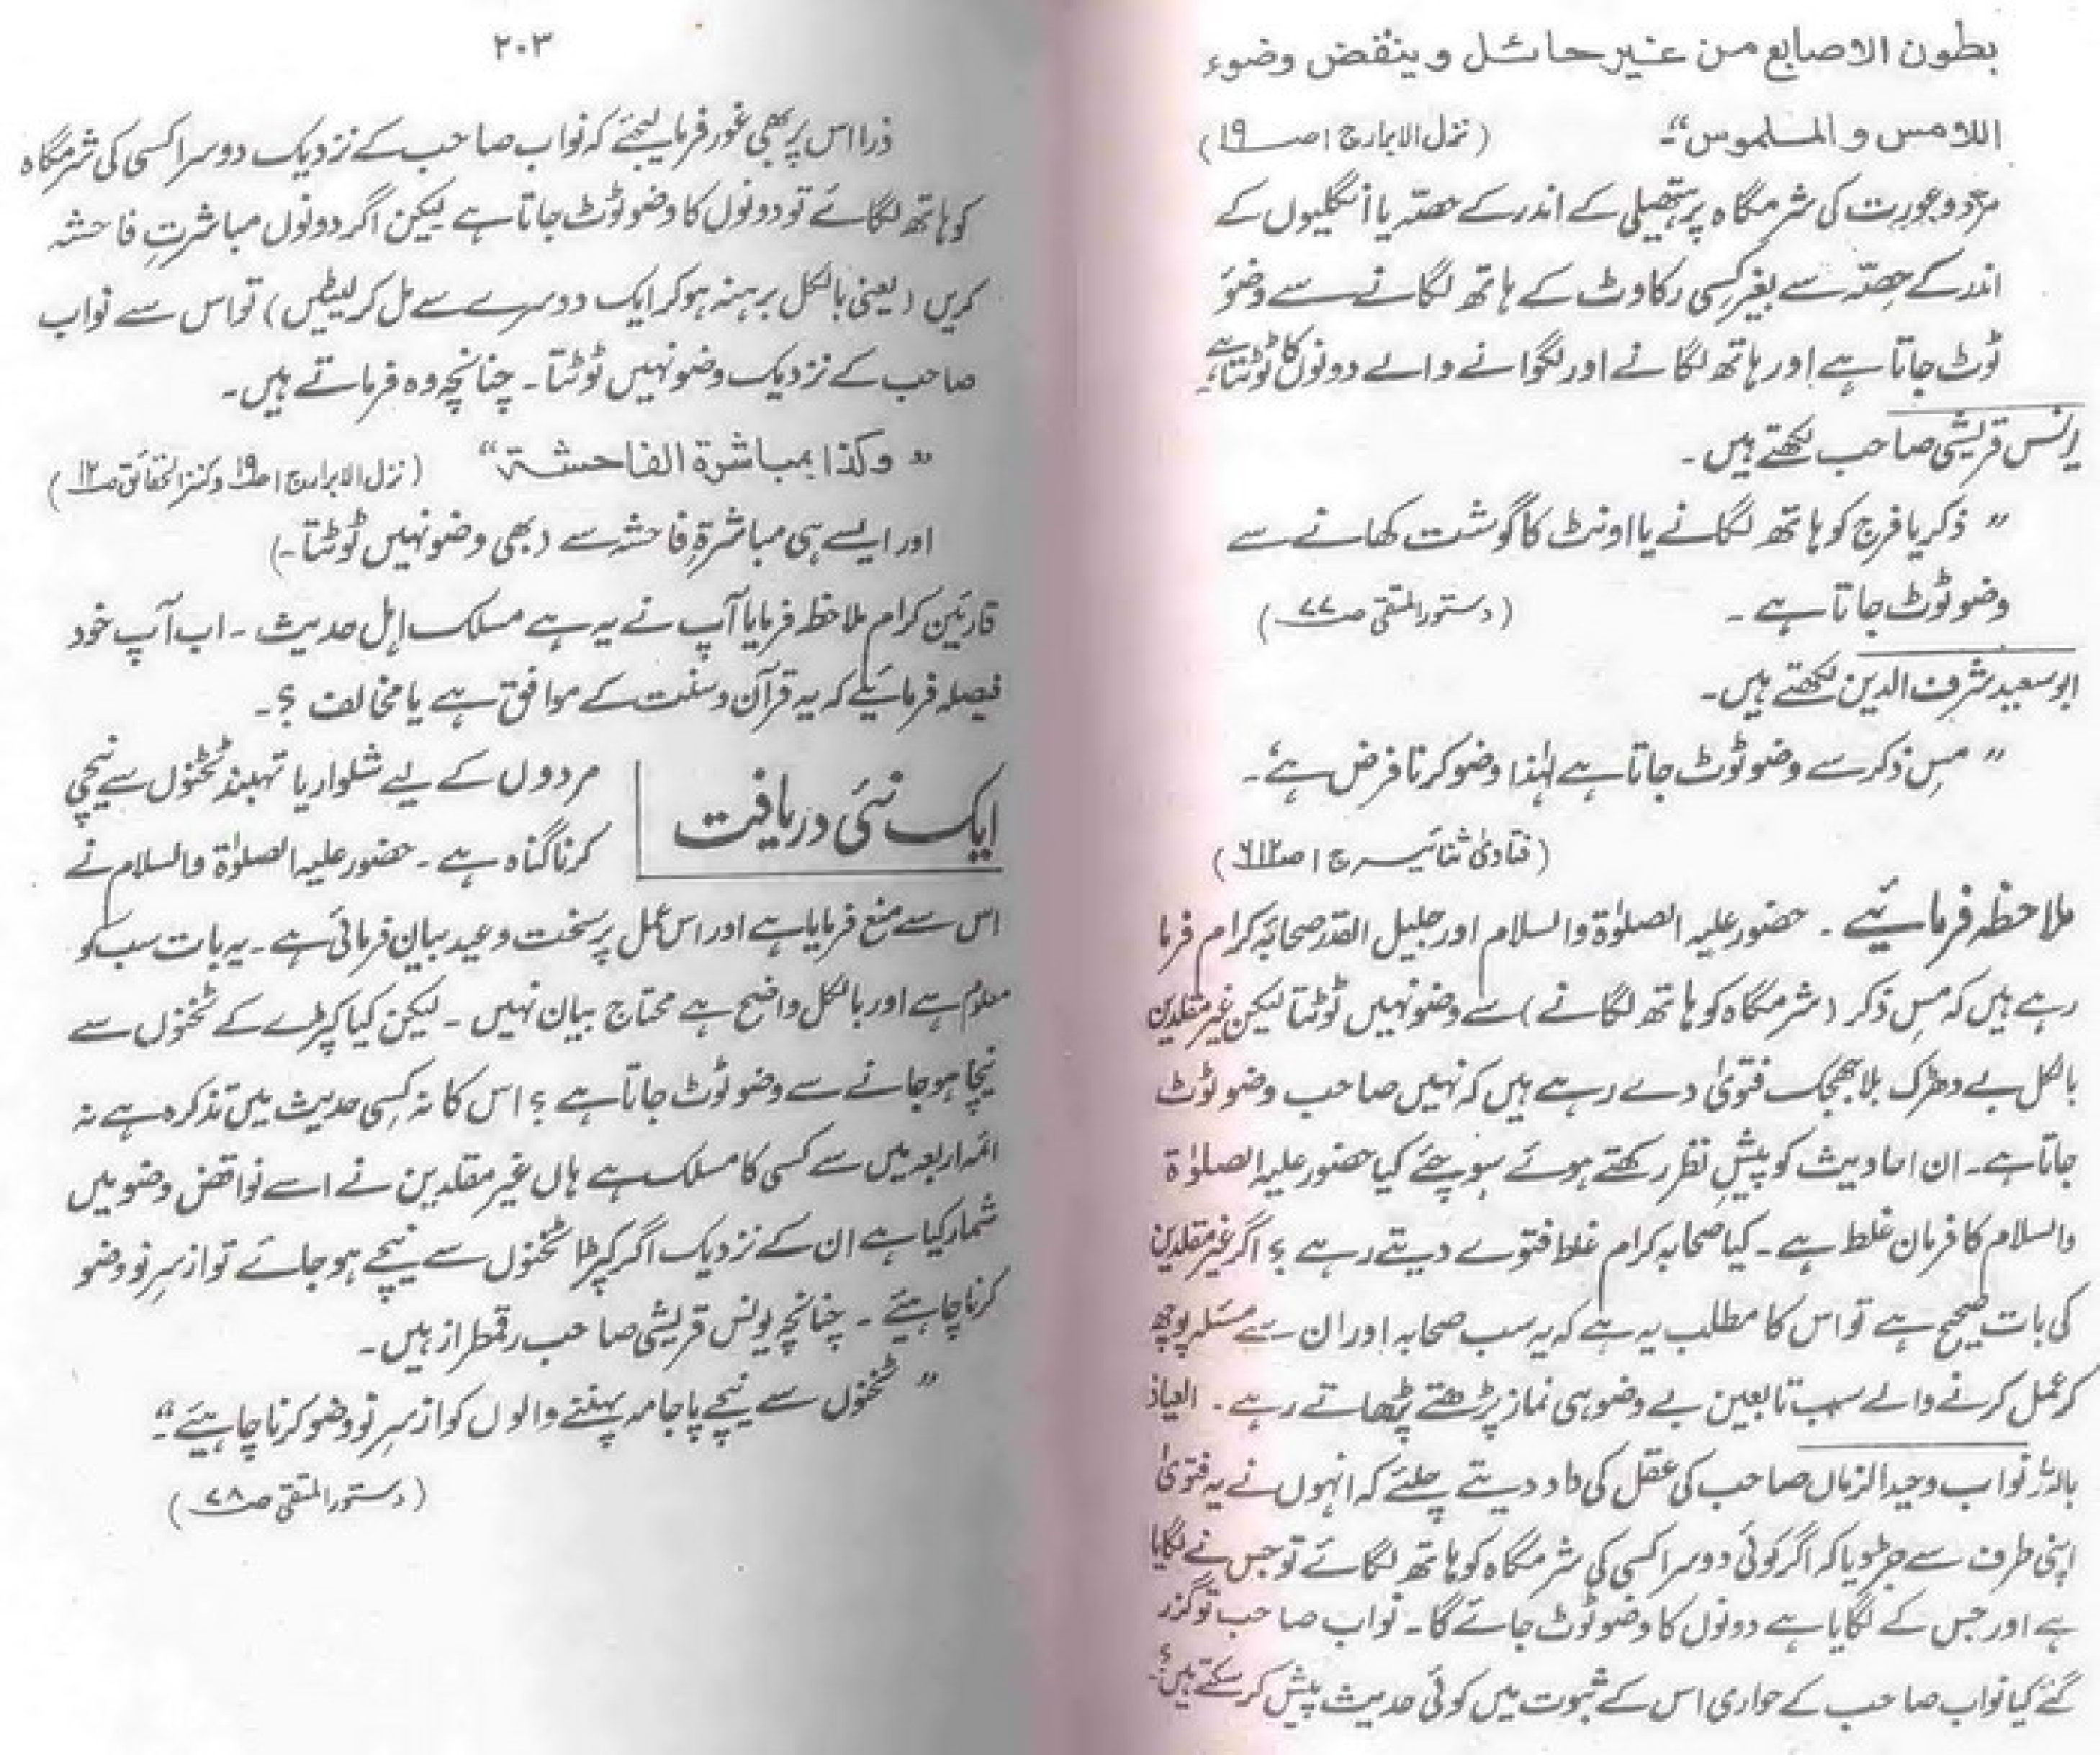 بطون الاصابع من غیر حائل وینقض وضوء
اللامس و الملموس“۔ (نزل الابرار ج ۱ صـ ۱۹)
مرد و عورت کی شرمگاہ پر ہتھیلی کے اندر کے حصّہ یا انگلیوں کے
اندر کے حصّہ سے بغیر کسی رکاوٹ کے ہاتھ لگانے سے وضوَ
ٹوٹ جاتا ہے اور ہاتھ لگانے اور لگوانے والے دونوں کا ٹوٹتا ہے
یونس قریشی صاحب لکھتے ہیں۔
” ذکر یا فرج کو ہاتھ لگانے یا اونٹ کا گوشت کھانے سے
وضو ٹوٹ جاتا ہے ۔ (دستور المتقی صـ ۷۷)
ابوسعید شرف الدین لکھتے ہیں۔
” مسِ ذکر سے وضو ٹوٹ جاتا ہے لہٰذا وضو کرنا فرض ہے“۔
(فتاویٰ ثنائیہ ج ۱ صـ ۶۱۲)
ملاحظہ فرمائیے ۔ حضور علیہ الصلوٰۃ والسلام اور جلیل القدر صحابہ کرام فرما
رہے ہیں کہ مسِ ذکر (شرمگاہ کو ہاتھ لگانے) سے وضو نہیں ٹوٹتا لیکن غیر مقلدین
بالکل بے دھڑک بلا جھجک فتویٰ دے رہے ہیں کہ نہیں صاحب وضو ٹوٹ
جاتا ہے۔ ان احادیث کو پیشِ نظر رکھتے ہوئے سوچئے کیا حضور علیہ الصلوٰۃ
والسلام کا فرمان غلط ہے۔ کیا صحابہ کرام غلط فتوے دیتے رہے ؟ اگر غیر مقلدین
کی بات صحیح ہے تو اس کا مطلب یہ ہے کہ یہ سب صحابہ اور ان سے مسئلہ پوچھ
کر عمل کرنے والے سب تابعین بے وضو ہی نماز پڑھتے پڑھاتے رہے ۔ العیاذ
باللہ نواب وحید الزماں صاحب کی عقل کی داد دیتے چلئے کہ انہوں نے یہ فتویٰ
اپنی طرف سے جڑ دیا کہ اگر کوئی دوسرا کسی کی شرمگاہ کو ہاتھ لگائے تو جس نے لگایا
ہے اور جس کے لگایا ہے دونوں کا وضو ٹوٹ جائے گا۔ نواب صاحب تو گزر
گئے کیا نواب صاحب کے حواری اس کے ثبوت میں کوئی حدیث پیش کر سکتے ہیں؟
۲۰۳
ذرا اس پر بھی غور فرما لیجئے کہ نواب صاحب کے نزدیک دوسرا کسی کی شرمگاہ
کو ہاتھ لگائے تو دونوں کا وضو ٹوٹ جاتا ہے لیکن اگر دونوں مباشرتِ فاحشہ
کریں (یعنی بالکل برہنہ ہو کر ایک دوسرے سے مل کر لیٹیں) تو اس سے نواب
صاحب کے نزدیک وضو نہیں ٹوٹتا۔ چنانچہ وہ فرماتے ہیں۔
” وکذا بمباشرة الفاحشة“ (نزل الابرار ج ۱ صـ ۱۹ وکنز الحقائق صـ ۱۲)
اور ایسے ہی مباشرۃِ فاحشہ سے (بھی وضو نہیں ٹوٹتا۔)
قارئین کرام ملاحظہ فرمایا آپ نے یہ ہے مسلک اہل حدیث ۔ اب آپ خود
فیصلہ فرمائیے کہ یہ قرآن و سنت کے موافق ہے یا مخالف ؟۔
ایک نئی دریافت
مردوں کے لیے شلوار یا تہبند ٹخنوں سے نیچی
کرنا گناہ ہے ۔ حضور علیہ الصلوٰۃ والسلام نے
اس سے منع فرمایا ہے اور اس عمل پر سخت وعید بیان فرمائی ہے ۔ یہ بات سب کو
معلوم ہے اور بالکل واضح ہے محتاج بیان نہیں ۔ لیکن کیا کپڑے کے ٹخنوں سے
نیچا ہو جانے سے وضو ٹوٹ جاتا ہے ؟ اس کا نہ کسی حدیث میں تذکرہ ہے نہ
ائمہ اربعہ میں سے کسی کا مسلک ہے ہاں غیر مقلدین نے اسے نواقض وضو میں
شمار کیا ہے ان کے نزدیک اگر کپڑا ٹخنوں سے نیچے ہو جائے تو ازسرِنو وضو
کرنا چاہیئے ۔ چنانچہ یونس قریشی صاحب رقمطراز ہیں۔
” ٹخنوں سے نیچے پاجامہ پہننے والوں کو ازسرِنو وضو کرنا چاہیئے“۔
(دستور المتقی صـ ۷۸)